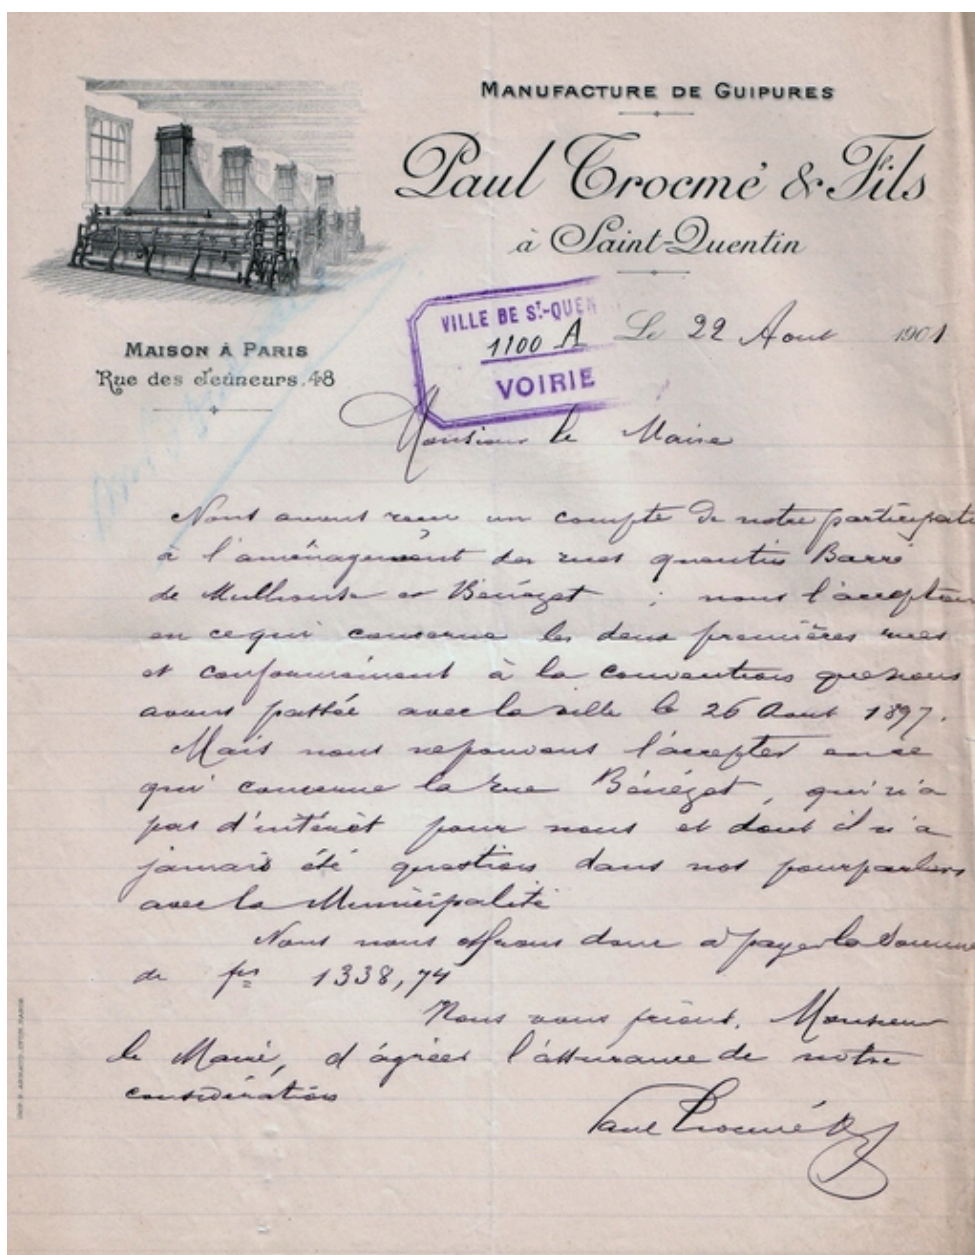 MANUFACTURE DE GUIPURES
Paul Trocmé & Fils
à Saint-Quentin
MAISON À PARIS
Rue des Jeûneurs. 48
VILLE DE ST-QUEN
1100 A
VOIRIE
Le 22 Aout 1901
Monsieur le Maire
Nous avons reçu un compte de notre participati
à l'aménagement des rues quentin Barré
de Mulhouse et Bénézet ; nous l'acceptons
en ce qui concerne les deux premières rues
et conformément à la convention que nous
avons passée avec la ville le 26 Aout 1897.
Mais nous ne pouvons l'accepter en ce
qui concerne la rue Bénézet, qui n'a
pas d'intérêt pour nous et dont il n'a
jamais été question dans nos pourparlers
avec la Municipalité
Nous nous offrons donc à payer la somme
de frs 1338,74
Nous vous prions, Monsieur
le Maire, d'agréer l'assurance de notre
considération
Paul Trocmé & fils